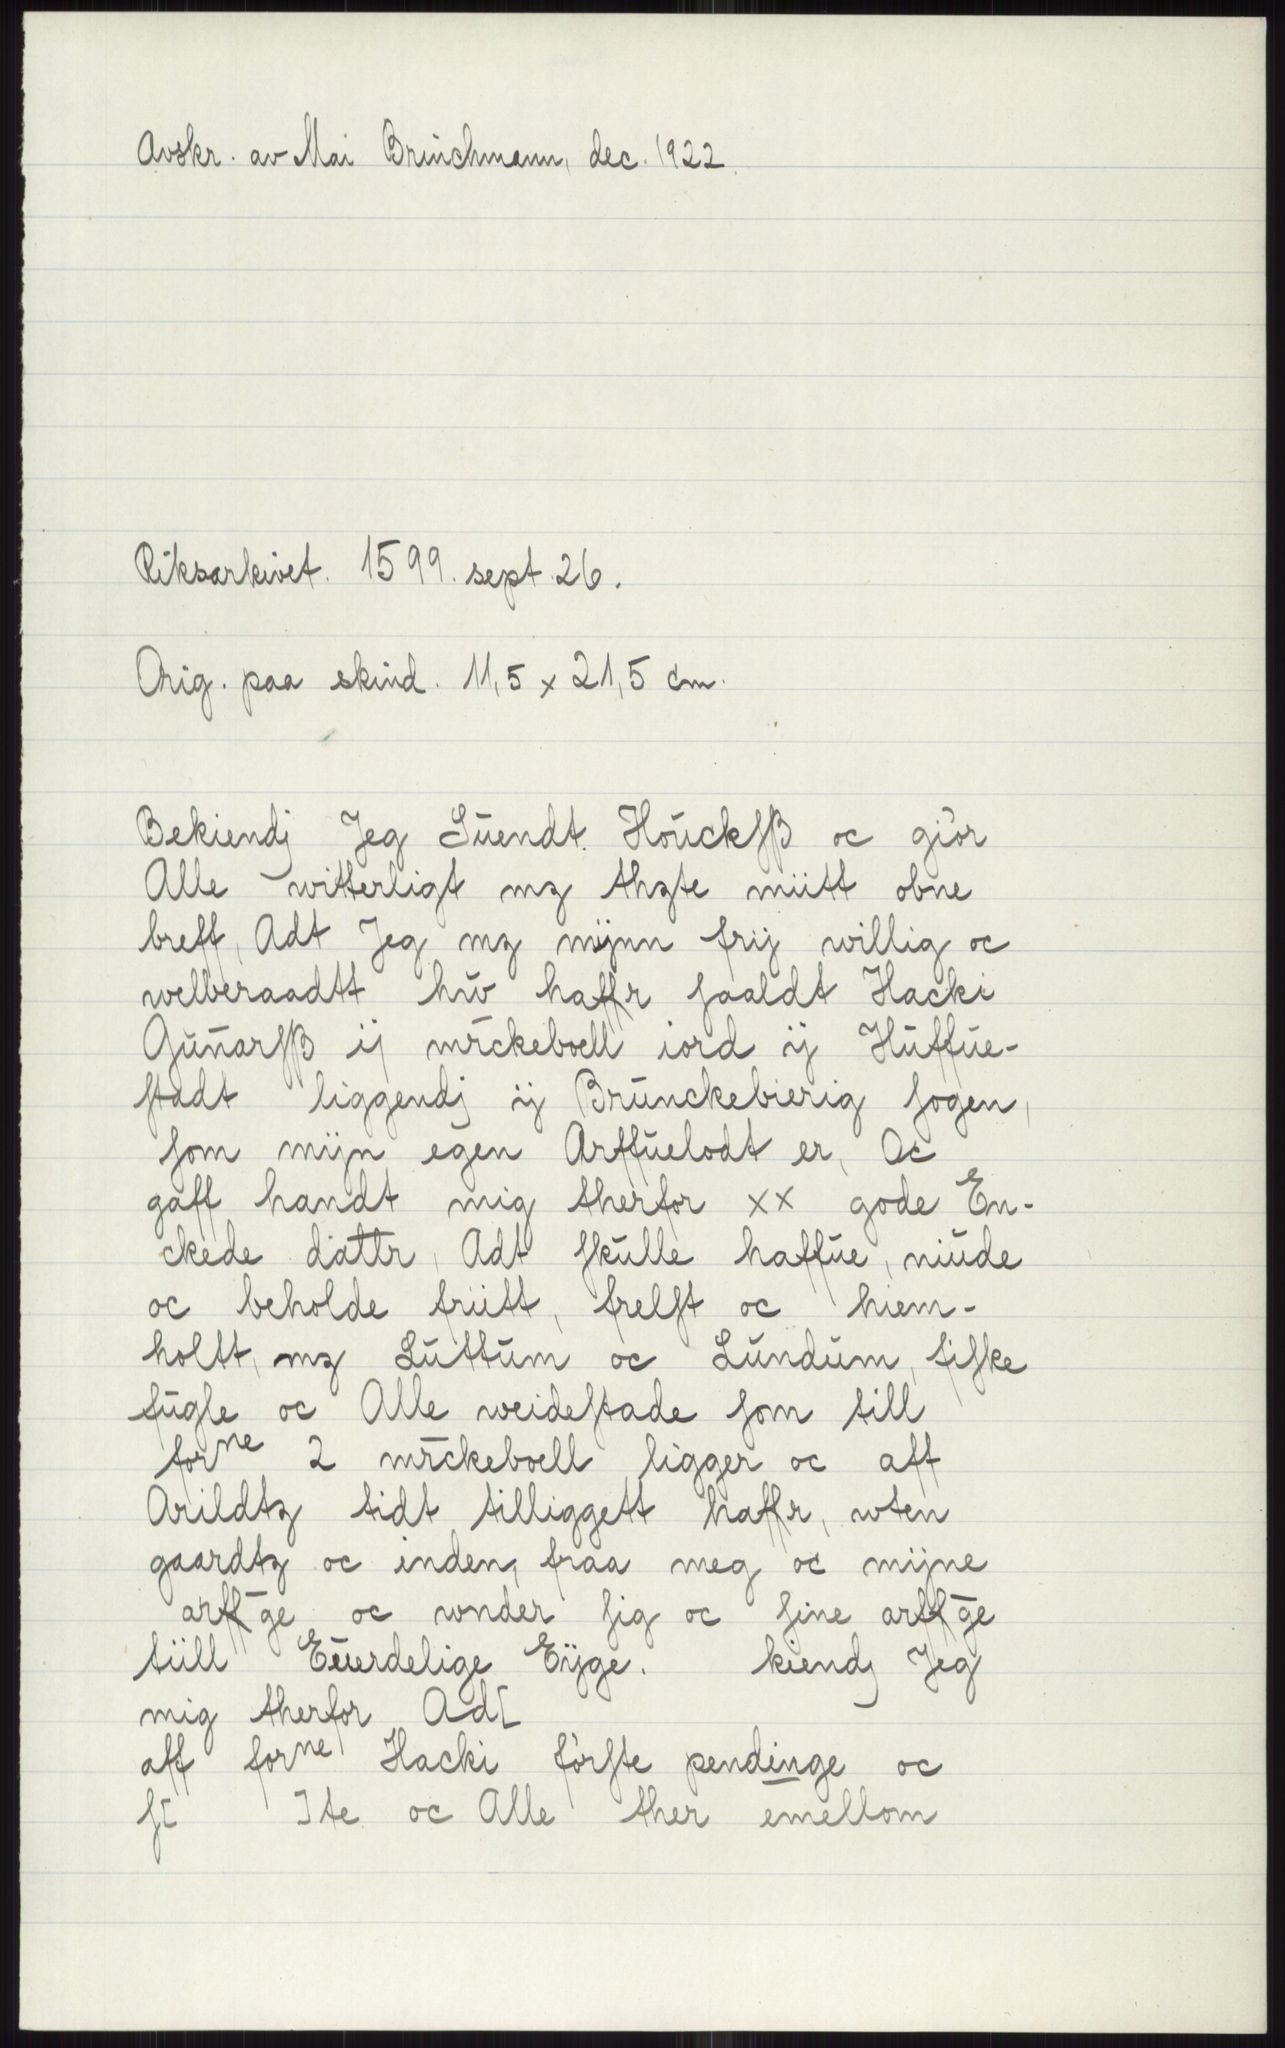 Avskr. av Mai Brinchmann, dec. 1922.
Riksarkivet. 1599. sept. 26.
Orig. paa skind. 11,5 x 21,5 cm.
Bekiendj Jeg Suendt Houckſß oc giør
Alle witterligt mz thzte miitt obne
breff, Adt Jeg mz mijnn frij willig oc
welberaadtt hw haffr ſaaldt Hacki
Gun̄arſß ij mr̄ckeboell iord ij Huffue-
ſtadt liggendj ij Brunckebierig ſogen,
ſom mijn egen Arffuelodt er, Oc
gaff handt mig therfor xx gode En-
ckede dattr, Adt ſkulle haffue, niude
oc beholde friitt, frelſt oc hiem-
holtt, mz Luttum oc Lundum, fiſke
fugle oc Alle weideſtade ſom till
forne 2 mr̄ckeboell ligger oc aff
Arildtz tidt tilliggett haffr, wten
gaardtz oc inden, fraa meg oc mijne
arff̄ge oc wnder ſig oc ſine arff̄ge
tiill Euerdelige Eÿge. kiendj Jeg
mig therfor Ad[
aff forne Hacki førſte pendinge oc
ſ[ ]te oc Alle ther emellom